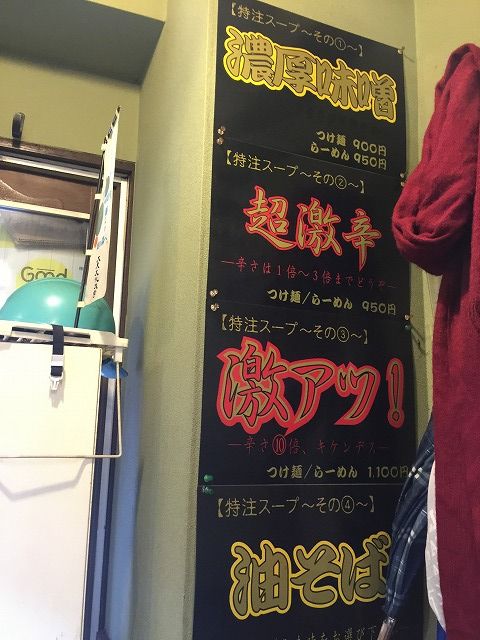 【特注スープ～その①～】
濃厚味噌
つけ麺 900円
らーめん 950円
【特注スープ～その②～】
超激辛
―辛さは1倍～3倍までどうぞ―
つけ麺/らーめん 950円
【特注スープ～その③～】
激アツ!
―辛さ⑩倍、キケンデス―
つけ麺/らーめん 1,100円
【特注スープ～その④～】
油そば
Good